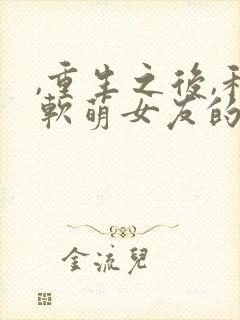 ,重生之後,和
軟萌女友的
金流兒